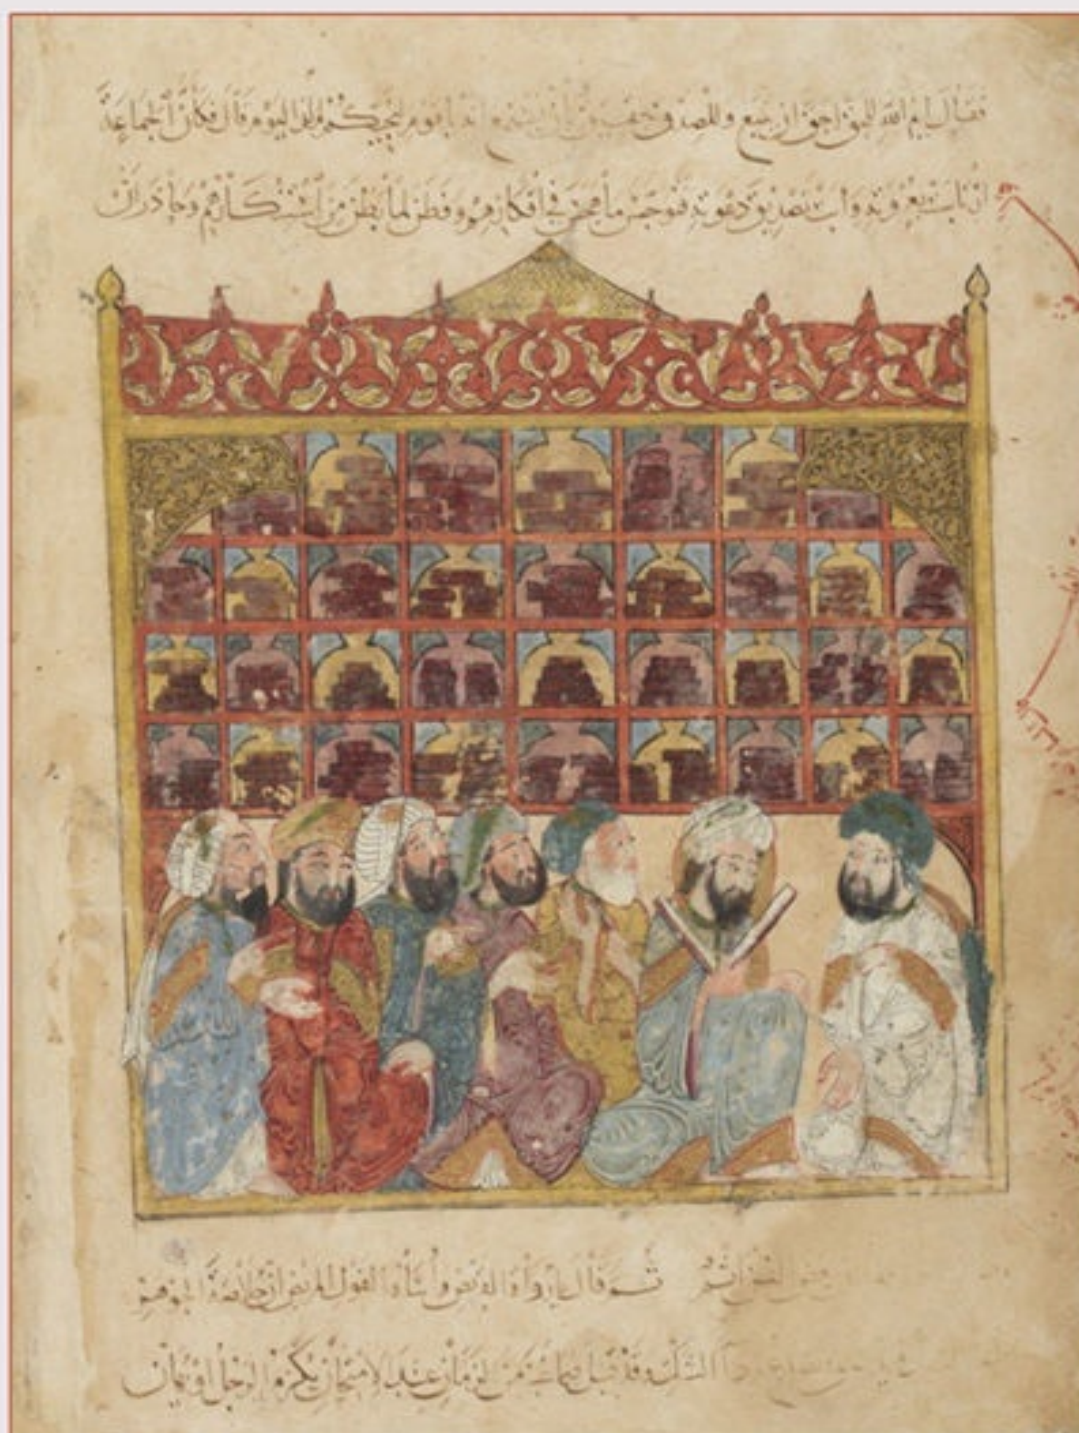 فقال أيم الله للحق أحق أن يتبع وللصدق حقيق بأن يستمع إنه يا قوم لنجيكم مذ اليوم قال فكأن الجماعة
ارتابت بعزوته وأبت تصديق دعوته فتوجس ما هجس في أفكارهم وفطن لما بطن من استنكارهم وحاذر أن
بعض الظن إثم ثم قال يا رواة القريض وأساة القول المريض إن خلاصة الجوهر
الحق تصدع رداء الشك وقد قيل فيما غبر من الزمان عند الامتحان يكرم الرجل أو يهان